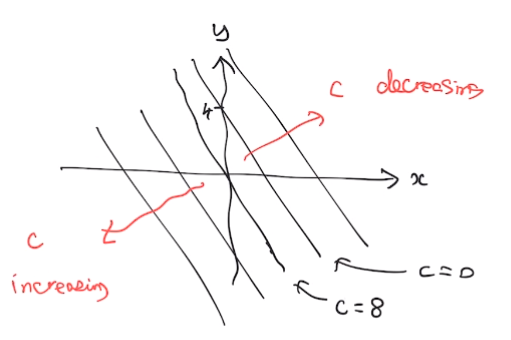 y
C decreasing
4
x
C
increasing
C=0
C=8